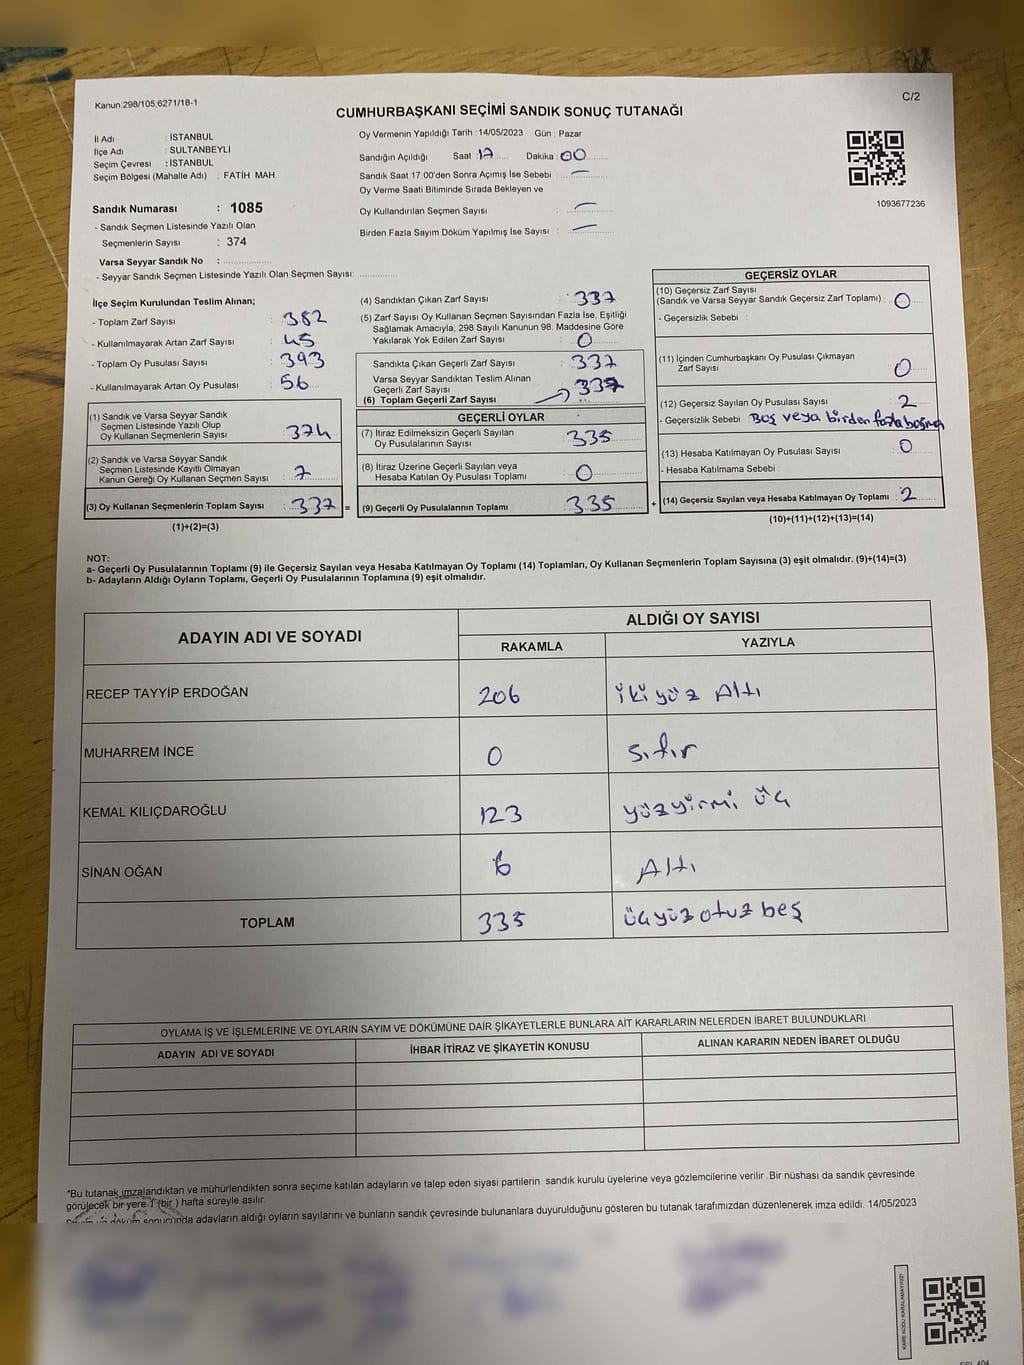 Kanun:298/105,6271/18-1
C/2
CUMHURBAŞKANI SEÇİMİ SANDIK SONUÇ TUTANAĞI
İl Adı : İSTANBUL
İlçe Adı : SULTANBEYLİ
Seçim Çevresi : İSTANBUL
Seçim Bölgesi (Mahalle Adı) : FATİH MAH.
Oy Vermenin Yapıldığı Tarih : 14/05/2023 Gün : Pazar
Sandığın Açıldığı Saat : 17 Dakika : 00
Sandık Saat 17:00'den Sonra Açımış İse Sebebi : —
Oy Verme Saati Bitiminde Sırada Bekleyen ve
Oy Kullandırılan Seçmen Sayısı : —
Birden Fazla Sayım Döküm Yapılmış İse Sayısı : —
1093677236
Sandık Numarası : 1085
- Sandık Seçmen Listesinde Yazılı Olan
Seçmenlerin Sayısı : 374
Varsa Seyyar Sandık No : ..................
- Seyyar Sandık Seçmen Listesinde Yazılı Olan Seçmen Sayısı: ..............
İlçe Seçim Kurulundan Teslim Alınan;
- Toplam Zarf Sayısı : 382
- Kullanılmayarak Artan Zarf Sayısı : 45
- Toplam Oy Pusulası Sayısı : 393
- Kullanılmayarak Artan Oy Pusulası : 56
(1) Sandık ve Varsa Seyyar Sandık
Seçmen Listesinde Yazılı Olup
Oy Kullanan Seçmenlerin Sayısı : 374
(2) Sandık ve Varsa Seyyar Sandık
Seçmen Listesinde Kayıtlı Olmayan
Kanun Gereği Oy Kullanan Seçmen Sayısı : 7
(3) Oy Kullanan Seçmenlerin Toplam Sayısı : 337 =
(1)+(2)=(3)
(4) Sandıktan Çıkan Zarf Sayısı : 337
(5) Zarf Sayısı Oy Kullanan Seçmen Sayısından Fazla İse, Eşitliği
Sağlamak Amacıyla, 298 Sayılı Kanunun 98. Maddesine Göre
Yakılarak Yok Edilen Zarf Sayısı : 0
Sandıkta Çıkan Geçerli Zarf Sayısı : 337
Varsa Seyyar Sandıktan Teslim Alınan
Geçerli Zarf Sayısı : 337
(6) Toplam Geçerli Zarf Sayısı
GEÇERLİ OYLAR
(7) İtiraz Edilmeksizin Geçerli Sayılan
Oy Pusulalarının Sayısı : 335
(8) İtiraz Üzerine Geçerli Sayılan veya
Hesaba Katılan Oy Pusulası Toplamı : 0
(9) Geçerli Oy Pusulalarının Toplamı : 335 +
GEÇERSİZ OYLAR
(10) Geçersiz Zarf Sayısı
(Sandık ve Varsa Seyyar Sandık Geçersiz Zarf Toplamı) : 0
- Geçersizlik Sebebi :
(11) İçinden Cumhurbaşkanı Oy Pusulası Çıkmayan
Zarf Sayısı : 0
(12) Geçersiz Sayılan Oy Pusulası Sayısı : 2
- Geçersizlik Sebebi : Boş veya birden fazla basma
(13) Hesaba Katılmayan Oy Pusulası Sayısı : 0
- Hesaba Katılmama Sebebi :
(14) Geçersiz Sayılan veya Hesaba Katılmayan Oy Toplamı : 2
(10)+(11)+(12)+(13)=(14)
NOT:
a- Geçerli Oy Pusulalarının Toplamı (9) ile Geçersiz Sayılan veya Hesaba Katılmayan Oy Toplamı (14) Toplamları, Oy Kullanan Seçmenlerin Toplam Sayısına (3) eşit olmalıdır. (9)+(14)=(3)
b- Adayların Aldığı Oyların Toplamı, Geçerli Oy Pusulalarının Toplamına (9) eşit olmalıdır.
ADAYIN ADI VE SOYADI
ALDIĞI OY SAYISI
RAKAMLA YAZIYLA
RECEP TAYYİP ERDOĞAN 206 iki yüz Altı
MUHARREM İNCE 0 sıfır
KEMAL KILIÇDAROĞLU 123 yüzyirmi üç
SİNAN OĞAN 6 Altı
TOPLAM 335 üçyüz otuz beş
OYLAMA İŞ VE İŞLEMLERİNE VE OYLARIN SAYIM VE DÖKÜMÜNE DAİR ŞİKAYETLERLE BUNLARA AİT KARARLARIN NELERDEN İBARET BULUNDUKLARI
ADAYIN ADI VE SOYADI İHBAR İTİRAZ VE ŞİKAYETİN KONUSU ALINAN KARARIN NEDEN İBARET OLDUĞU
*Bu tutanak imzalandıktan ve mühürlendikten sonra seçime katılan adayların ve talep eden siyasi partilerin sandık kurulu üyelerine veya gözlemcilerine verilir. Bir nüshası da sandık çevresinde
görülecek bir yere 1 (bir ) hafta süreyle asılır.
Sayım ve döküm sonucunda adayların aldığı oyların sayılarını ve bunların sandık çevresinde bulunanlara duyurulduğunu gösteren bu tutanak tarafımızdan düzenlenerek imza edildi. 14/05/2023
KARE KODU KARALAMAYINIZ!